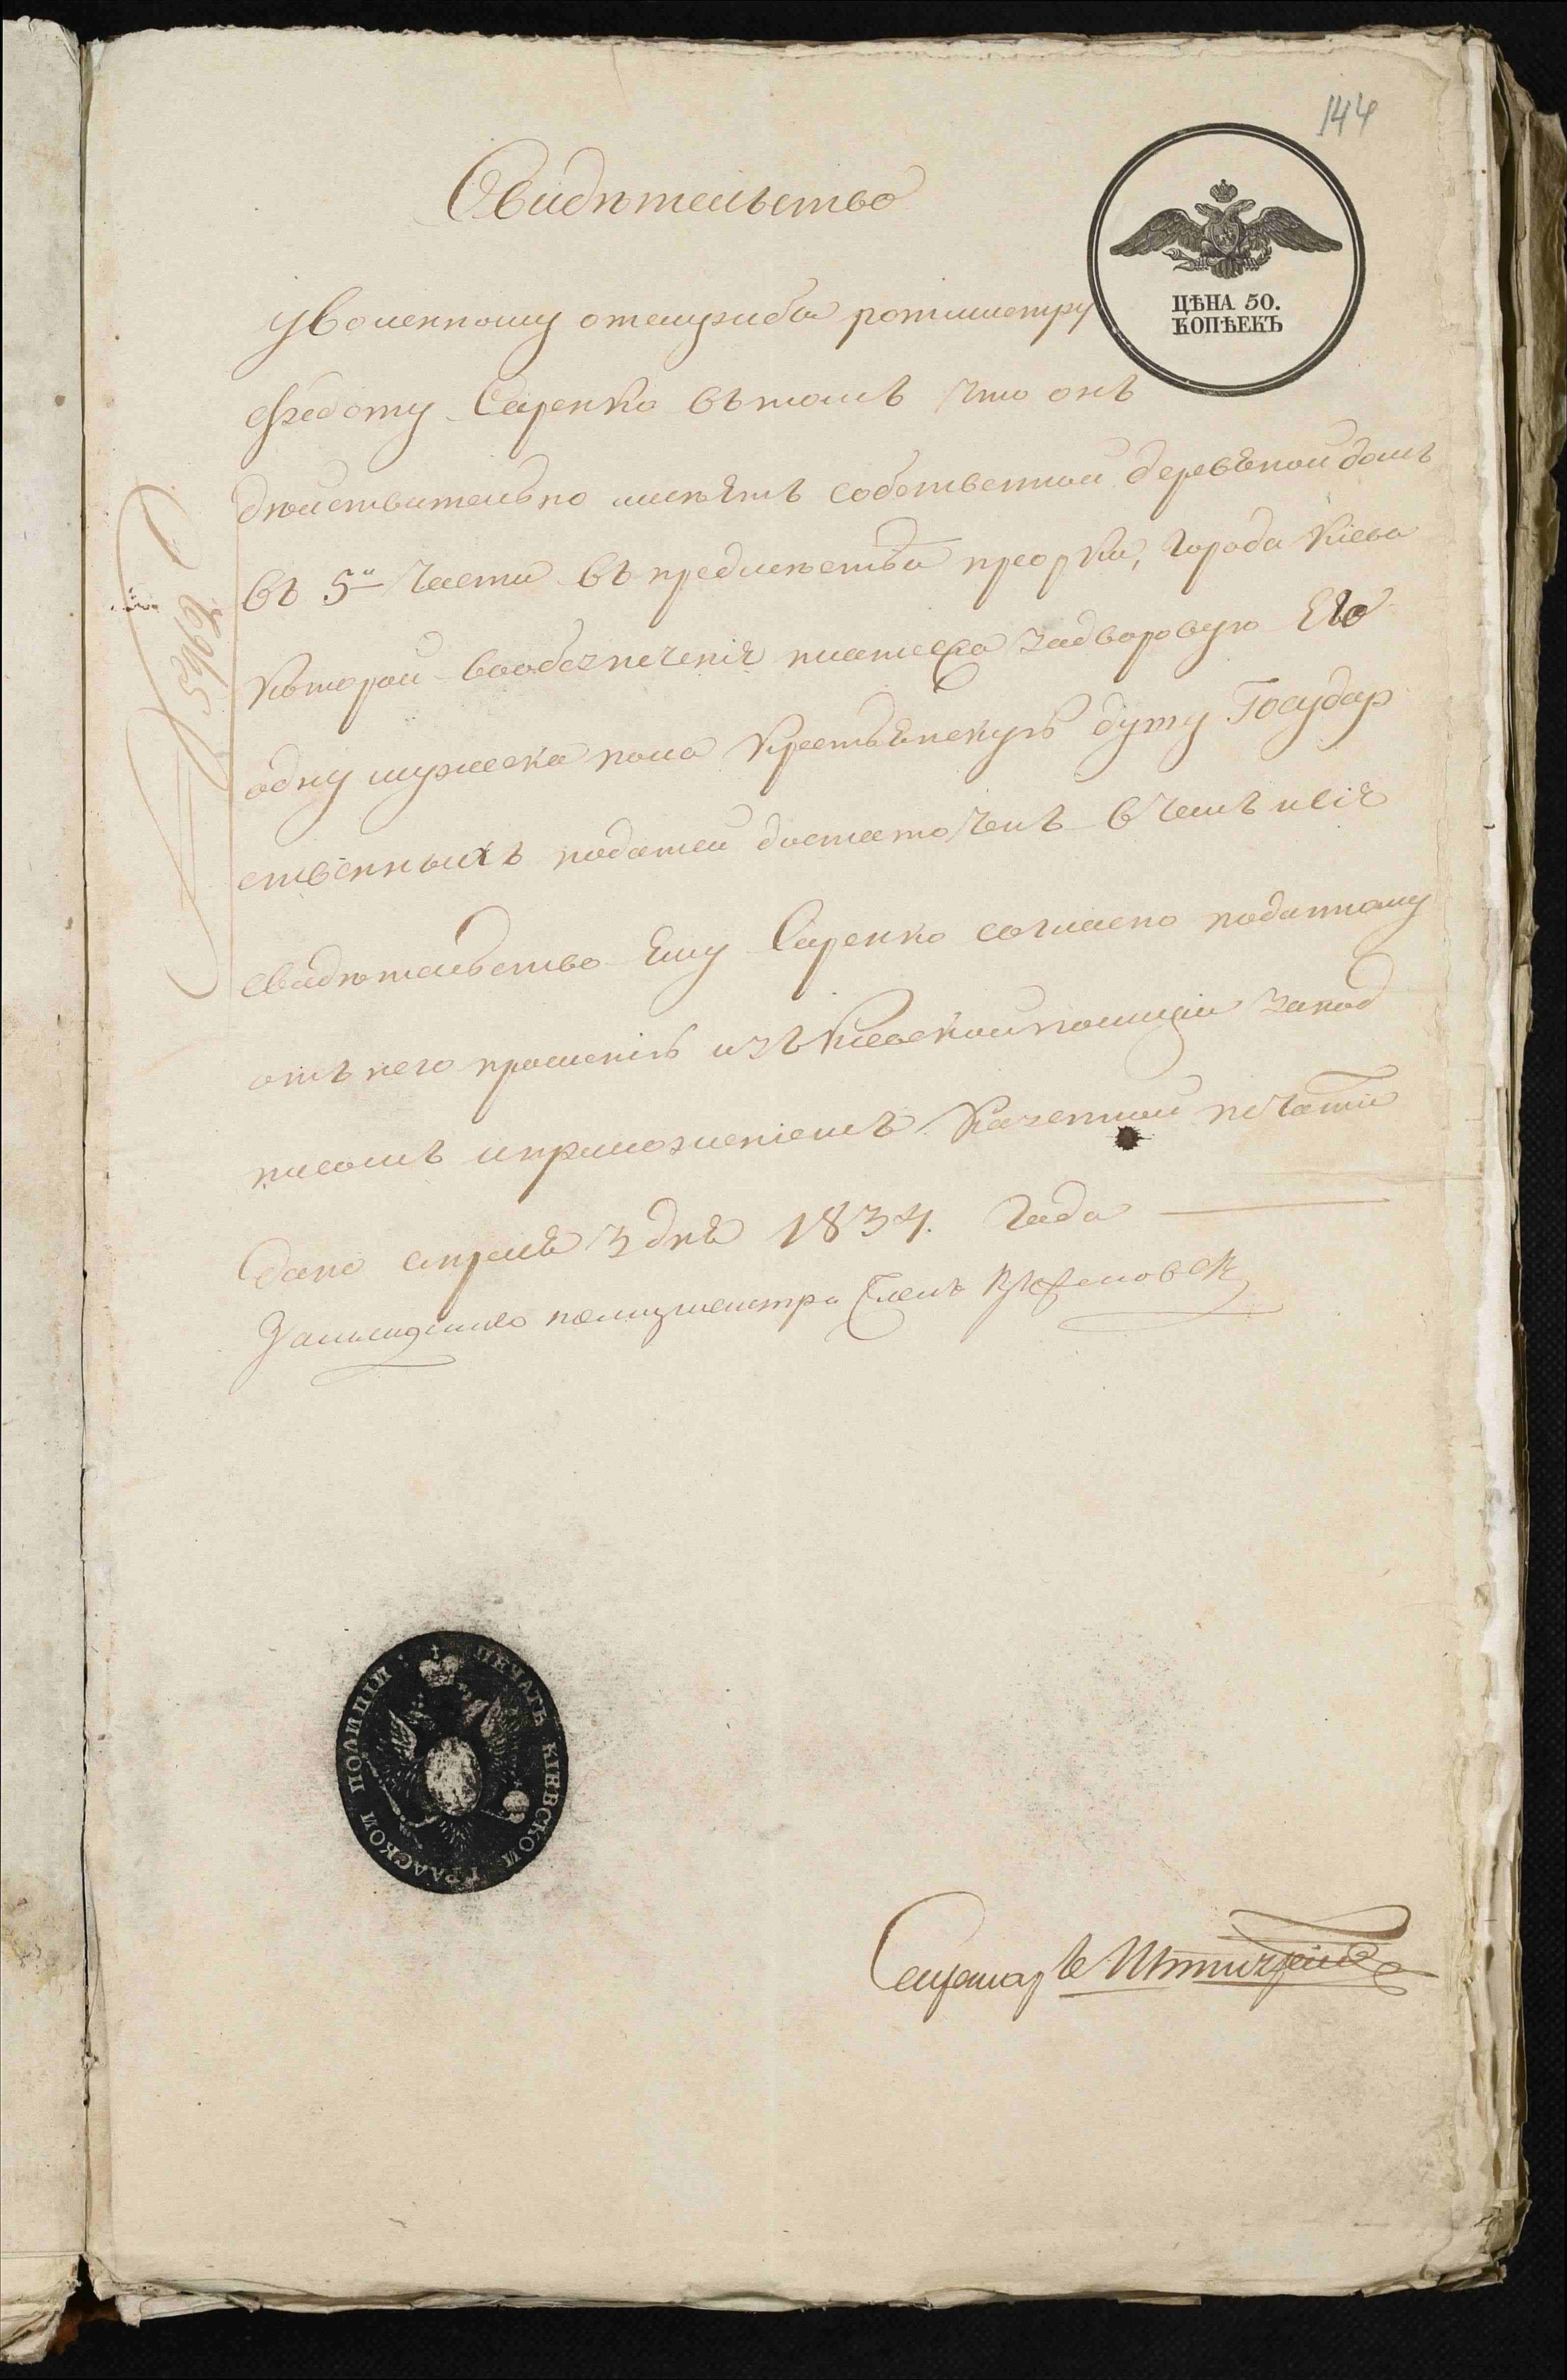 144
Свидѣтельство
ЦѢНА 50.
КОПѢЕКЪ
уволенному отслужбы ротмистру
Федоту Саренко вътомъ что онъ
дѣйствительно имѣетъ собственной деревяной домъ
въ 5й части въ предмѣстьи преорки, города Кіева
которой вообезпеченія платежа задворовую Его
одну мужеска пола крестьянскую душу Государ
ственныхъ податей достаточенъ вчемъ исіе
свидѣтельство Ему Саренко согласно поданному
отъ него прошенію изъ Кіевской полиціи запод
писомъ иприложеніемъ Казенной печати
дано апреля 3 дня 1834. года
Заполицмейстра Членъ
ПЕЧАТЬ КІЕВСКОЙ ГРАДСКОЙ ПОЛИЦІИ
Секретарь